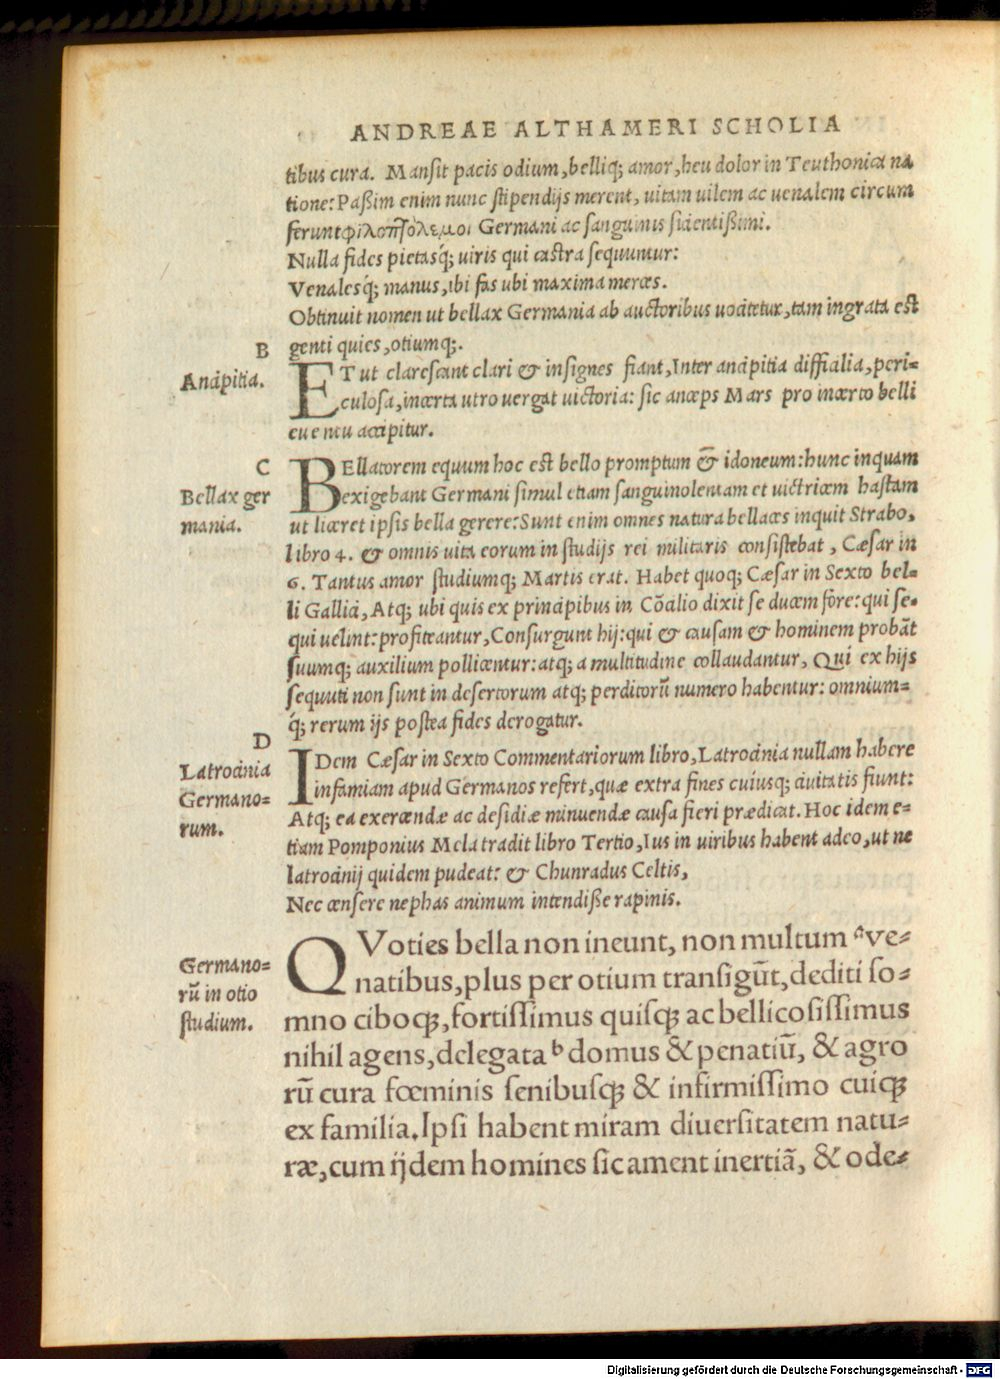 ANDREAE ALTHAMERI SCHOLIA
tibus cura. Mansit pacis odium, belliq; amor, heu dolor in Teuthonica na
tione: Paßim enim nunc stipendijs merent, uitam uilem ac uenalem circum
ferunt φιλοπτόλεμοι Germani ac sanguinis sicientißimi.
Nulla fides pietasq́; uiris qui castra sequuntur:
Venalesq́; manus, ibi fas ubi maxima merces.
Obtinuit nomen ut bellax Germania ab auctoribus uocitetur, tam ingrata est
genti quies, otiumq;.
B
Ancipitia.
ET ut clarescant clari & insignes fiant, Inter ancipitia difficilia, peri=
culosa, incerta utro uergat uictoria: sic anceps Mars pro incerto belli
euentu accipitur.
C
Bellax ger
mania.
BEllatorem equum hoc est bello promptum & idoneum: hunc inquam
exigebant Germani simul etiam sanguinolentam et uictricem hastam
ut liceret ipsis bella gerere: Sunt enim omnes natura bellaces inquit Strabo,
libro 4. & omnis uita eorum in studijs rei militaris consistebat, Cæsar in
6. Tantus amor studiumq; Martis erat. Habet quoq; Cæsar in Sexto bel=
li Gallici, Atq; ubi quis ex principibus in Cõcilio dixit se ducem fore: qui se=
qui uelint: profiteantur, Consurgunt hij: qui & causam & hominem probãt
suumq; auxilium pollicentur: atq; a multitudine collaudantur, Qui ex hijs
sequuti non sunt in desertorum atq; perditorũ numero habentur: omnium=
q́; rerum ijs postea fides derogatur.
D
Latrocinia
Germano=
rum.
IDem Cæsar in Sexto Commentariorum libro, Latrocinia nullam habere
infamiam apud Germanos refert, quæ extra fines cuiusq; ciuitatis fiunt:
Atq; ea exercendæ ac desidiæ minuendæ causa fieri prædicat. Hoc idem e=
tiam Pomponius Mela tradit libro Tertio, Ius in uiribus habent adeo, ut ne
latrocinij quidem pudeat: & Chunradus Celtis,
Nec censere nephas animum intendiße rapinis.
Germano=
rũ in otio
studium.
QVoties bella non ineunt, non multum ᵃve=
natibus, plus per otium transigũt, dediti so=
mno ciboq;, fortissimus quisq; ac bellicosissimus
nihil agens, delegata ᵇ domus & penatiũ, & agro
rũ cura fœminis senibusq; & infirmissimo cuiq;
ex familia. Ipsi habent miram diuersitatem natu=
ræ, cum ijdem homines sic ament inertiã, & ode=
Digitalisierung gefördert durch die Deutsche Forschungsgemeinschaft - DFG